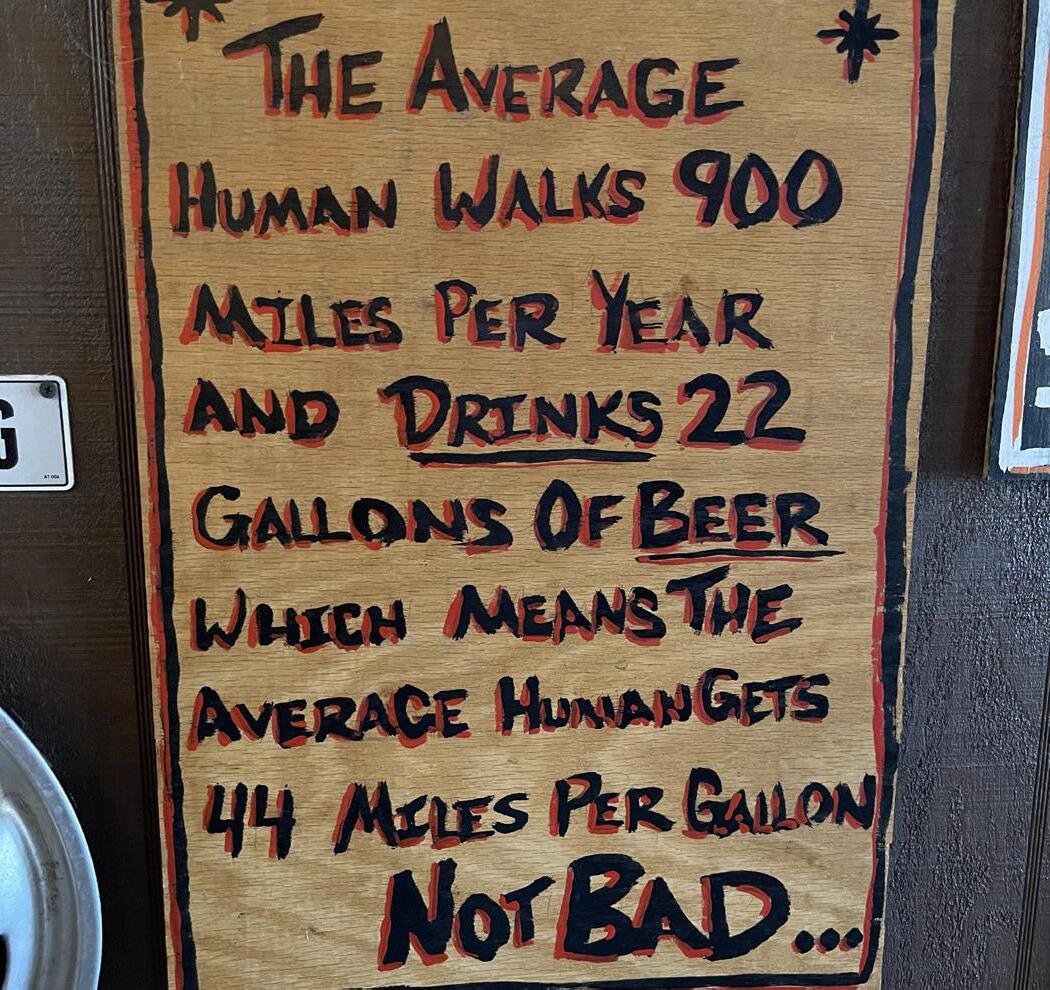 THE AVERAGE
HUMAN WALKS 900
MILES PER YEAR
AND DRINKS 22
GALLONS OF BEER
WHICH MEANS THE
AVERAGE HUMAN GETS
44 MILES PER GALLON
NOT BAD...
G